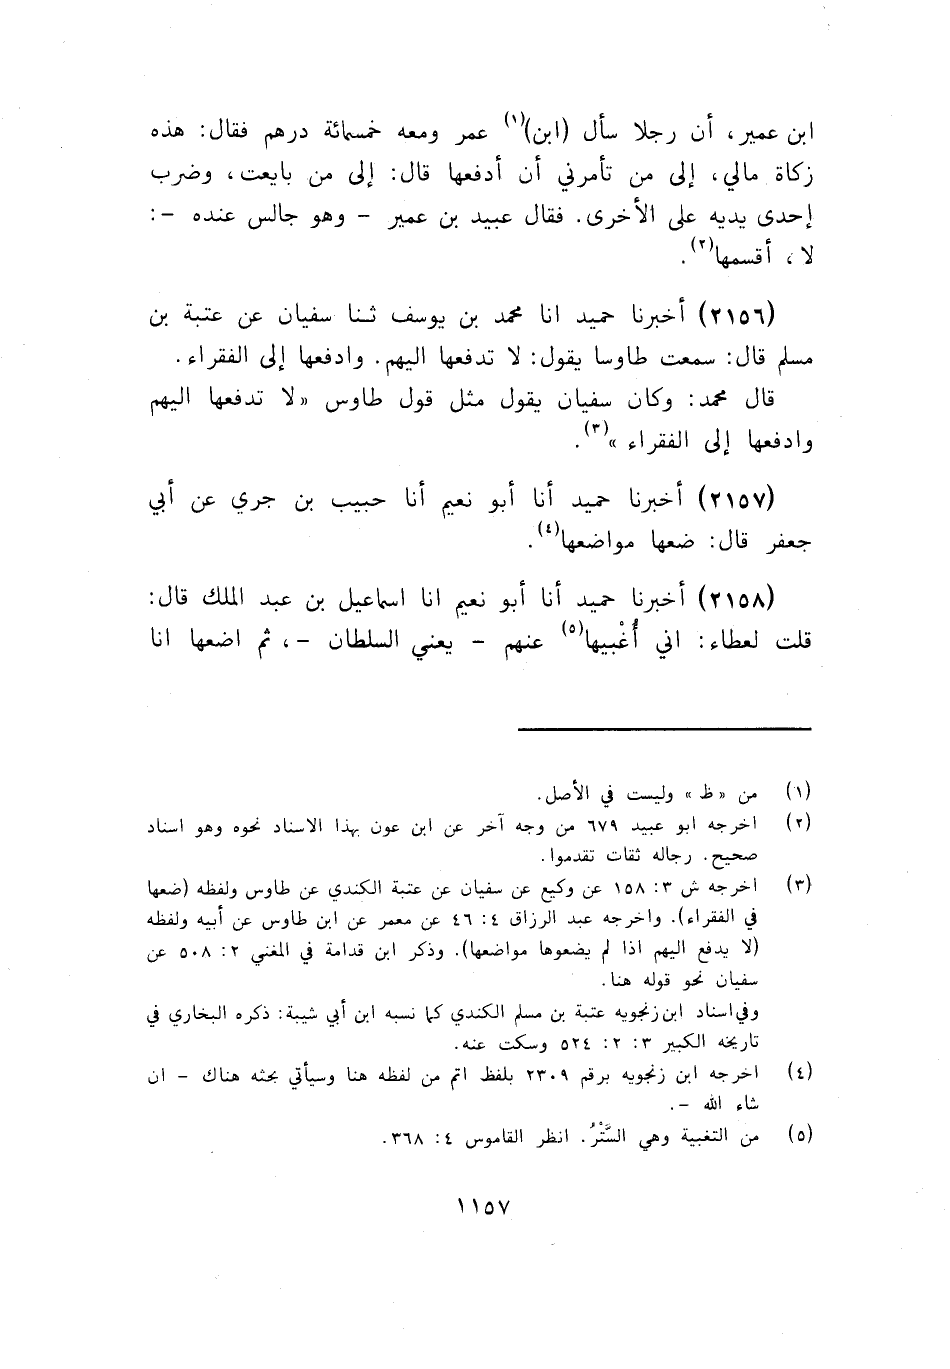 ابن عمير، أن رجلا سأل (ابن)(١) عمر ومعه خمسمائة درهم فقال: هذه
زكاة مالي، إلى من تأمرني أن أدفعها قال: إلى من بايعت، وضرب
إحدى يديه على الأخرى. فقال عبيد بن عمير - وهو جالس عنده -:
لا، أقسمها(٢).
(٢١٥٦) أخبرنا حميد انا محمد بن يوسف ثنا سفيان عن عتبة بن
مسلم قال: سمعت طاوسا يقول: لا تدفعها اليهم. وادفعها إلى الفقراء.
قال محمد: وكان سفيان يقول مثل قول طاوس «لا تدفعها اليهم
وادفعها إلى الفقراء»(٣).
(٢١٥٧) أخبرنا حميد أنا أبو نعيم أنا حبيب بن جري عن أبي
جعفر قال: ضعها مواضعها(٤).
(٢١٥٨) أخبرنا حميد أنا أبو نعيم انا اسماعيل بن عبد الملك قال:
قلت لعطاء: اني أُغْبيها(٥) عنهم - يعني السلطان -، ثم اضعها انا
(١) من «ظ» وليست في الأصل.
(٢) اخرجه ابو عبيد ٦٧٩ من وجه آخر عن ابن عون بهذا الاسناد نحوه وهو اسناد
صحيح. رجاله ثقات تقدموا.
(٣) اخرجه ش ٣: ١٥٨ عن وكيع عن سفيان عن عتبة الكندي عن طاوس ولفظه (ضعها
في الفقراء). واخرجه عبد الرزاق ٤: ٤٦ عن معمر عن ابن طاوس عن أبيه ولفظه
(لا يدفع اليهم اذا لم يضعوها مواضعها). وذكر ابن قدامة في المغني ٢: ٥٠٨ عن
سفيان نحو قوله هنا.
وفي اسناد ابن زنجويه عتبة بن مسلم الكندي كما نسبه ابن أبي شيبة: ذكره البخاري في
تاريخه الكبير ٣: ٢: ٥٢٤ وسكت عنه.
(٤) اخرجه ابن زنجويه برقم ٢٣٠٩ بلفظ اتم من لفظه هنا وسيأتي بحثه هناك - ان
شاء الله -.
(٥) من التغبية وهي السَّتْرُ. انظر القاموس ٤: ٣٦٨.
١١٥٧